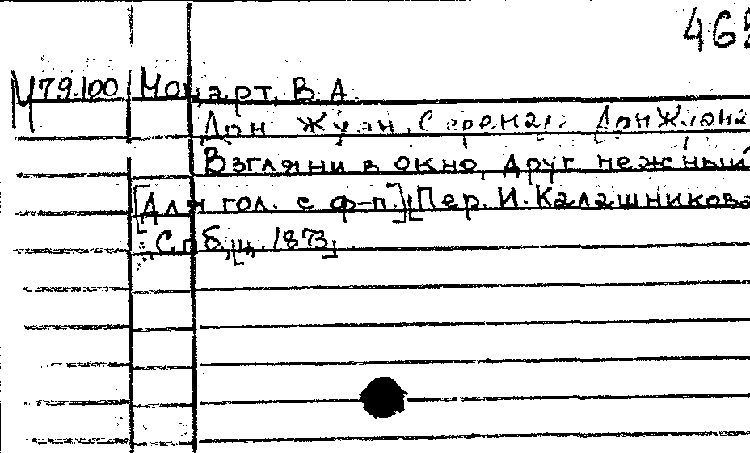 465
М79.100 Моцарт, В.А.
Дон Жуан. Серенада Дон Жуана
Взгляни в окно, друг нежный
[Для гол. с ф-п.] Пер. И. Калашникова
Спб, ц. 1873